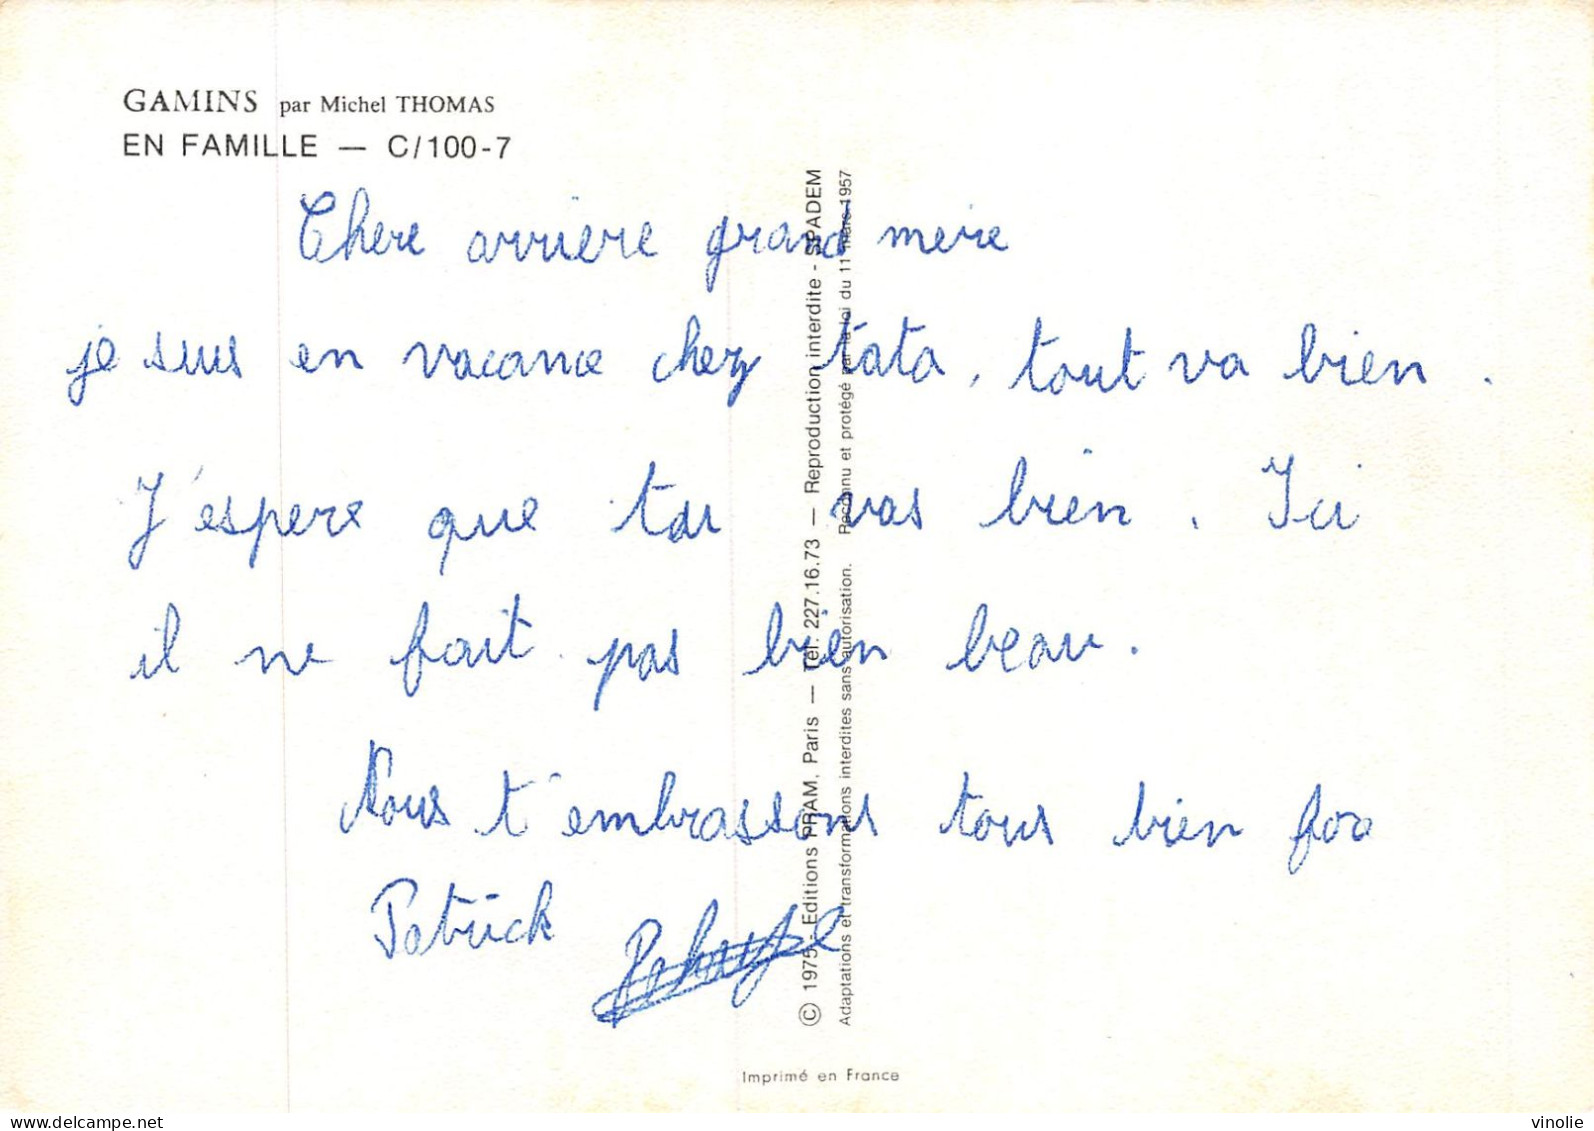 GAMINS par Michel THOMAS
EN FAMILLE — C/100-7
Chere arriere grand mere
je suis en vacance chez tata, tout va bien.
J'espere que toi vas bien. Ici
il ne fait pas bien beau.
Nous t'embrassons tous bien for
Patrick
© 1975 - Editions PRAM, Paris — Tél. 227.16.73 — Reproduction interdite - SPADEM
Adaptations et transformations interdites sans autorisation. Reconnu et protégé par la loi du 11 mars 1957
Imprimé en France
vinolie